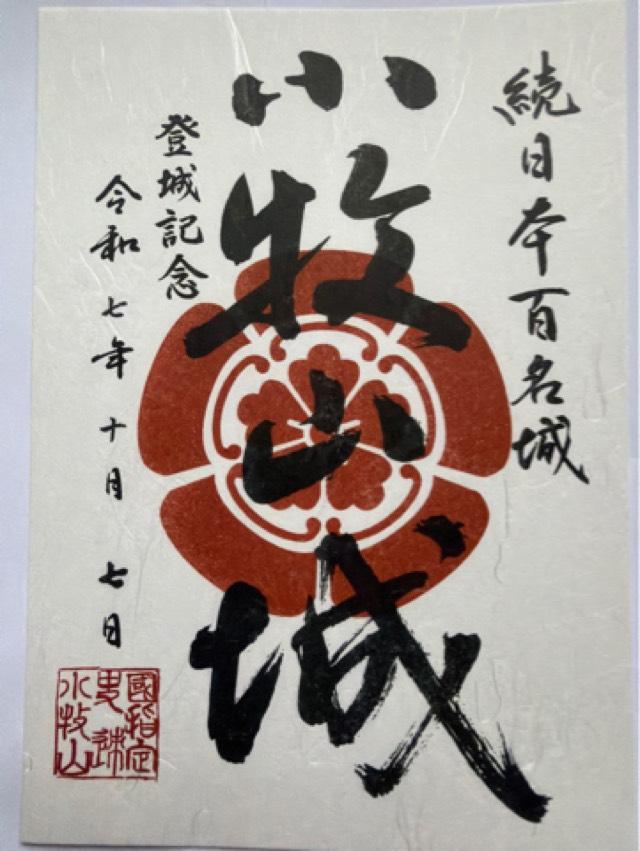 続日本百名城
小牧山城
登城記念
令和七年十月七日
國指定
史跡
小牧山